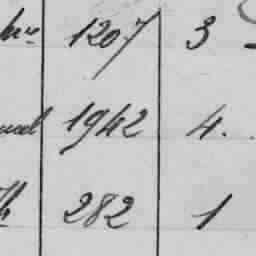 1207 3
1942 4.
282 1